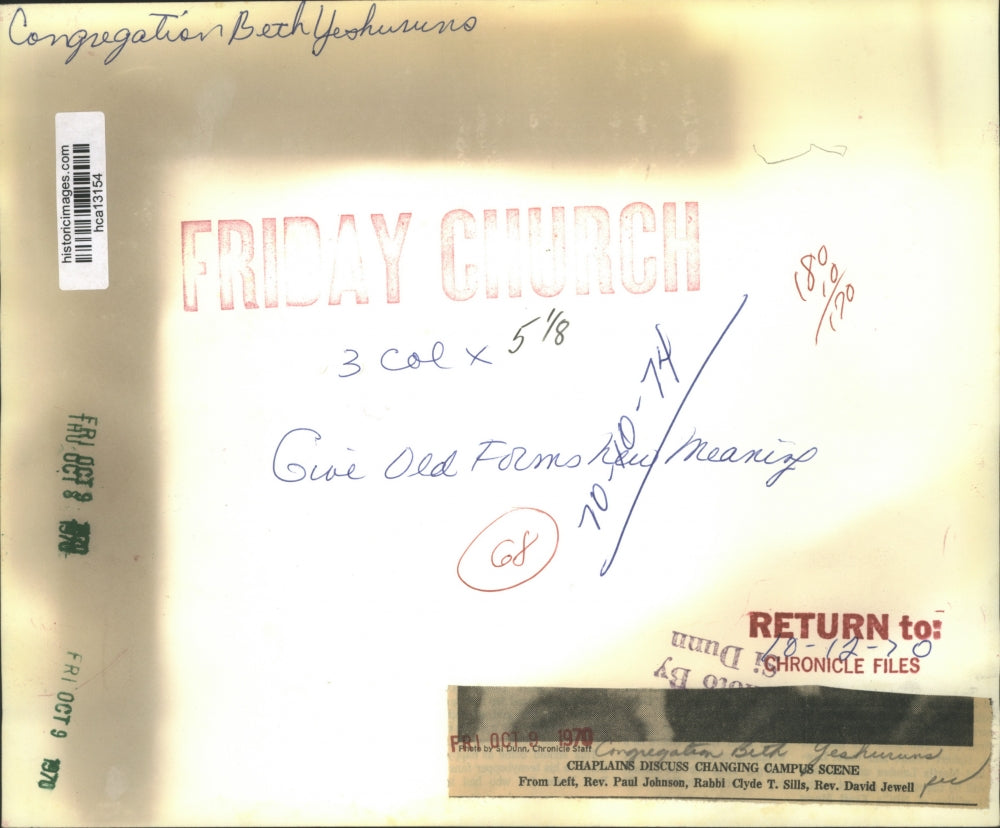 Congregation Beth Yeshuruns
historicimages.com
hca13154
FRIDAY CHURCH
180
10/170
3 Col x 5 1/8
10-10-74
Give Old Forms New Meaning
68
FRI OCT 9 1970
THU OCT 8 1970
FRI OCT 9 1970
RETURN to:
10-12-70
CHRONICLE FILES
Photo By
Si Dunn
FRI OCT 9 1970
Photo by Si Dunn, Chronicle Staff
Congregation Beth Yeshuruns
CHAPLAINS DISCUSS CHANGING CAMPUS SCENE
From Left, Rev. Paul Johnson, Rabbi Clyde T. Sills, Rev. David Jewell